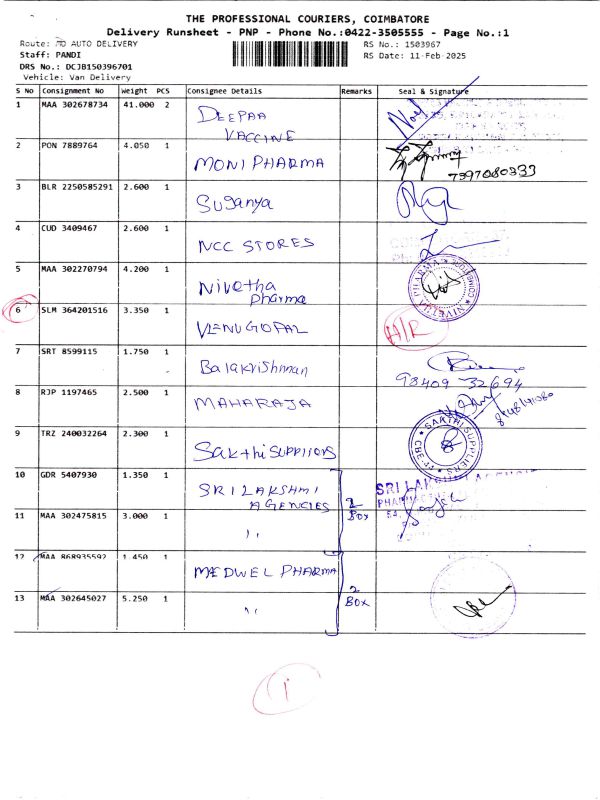 THE PROFESSIONAL COURIERS, COIMBATORE
Delivery Runsheet - PNP - Phone No.:0422-3505555 - Page No.:1
Route: MO AUTO DELIVERY
RS No.: 1503967
Staff: PANDI
RS Date: 11-Feb-2025
DRS No.: DCJB150396701
Vehicle: Van Delivery
S No Consignment No Weight PCS Consignee Details Remarks Seal & Signature
1 MAA 302678734 41.000 2 DEEPAA
VACCINE
2 PON 7889764 4.050 1 MONI PHARMA
7397080333
3 BLR 2250585291 2.600 1 Suganya
4 CUD 3409467 2.600 1 NCC STORES
5 MAA 302270794 4.200 1 Nivetha
pharma
NIVETHA PHARMA
6 SLM 364201516 3.350 1 VENUGOPAL
A/R
7 SRT 8599115 1.750 1 Balakrishman
98409 32694
8 RJP 1197465 2.500 1 MAHARAJA
9 TRZ 240032264 2.300 1 Sakthi SUPPliors
SAKTHI SUPPLIERS
10 GDR 5407930 1.350 1 SRI LAKSHMI
AGENCIES
2
BOX
SRI LAKSHMI
11 MAA 302475815 3.000 1 ,,
12 MAA 868935592 1.450 1 MEDWEL PHARMA
2
BOX
13 MAA 302645027 5.250 1 ,,
1